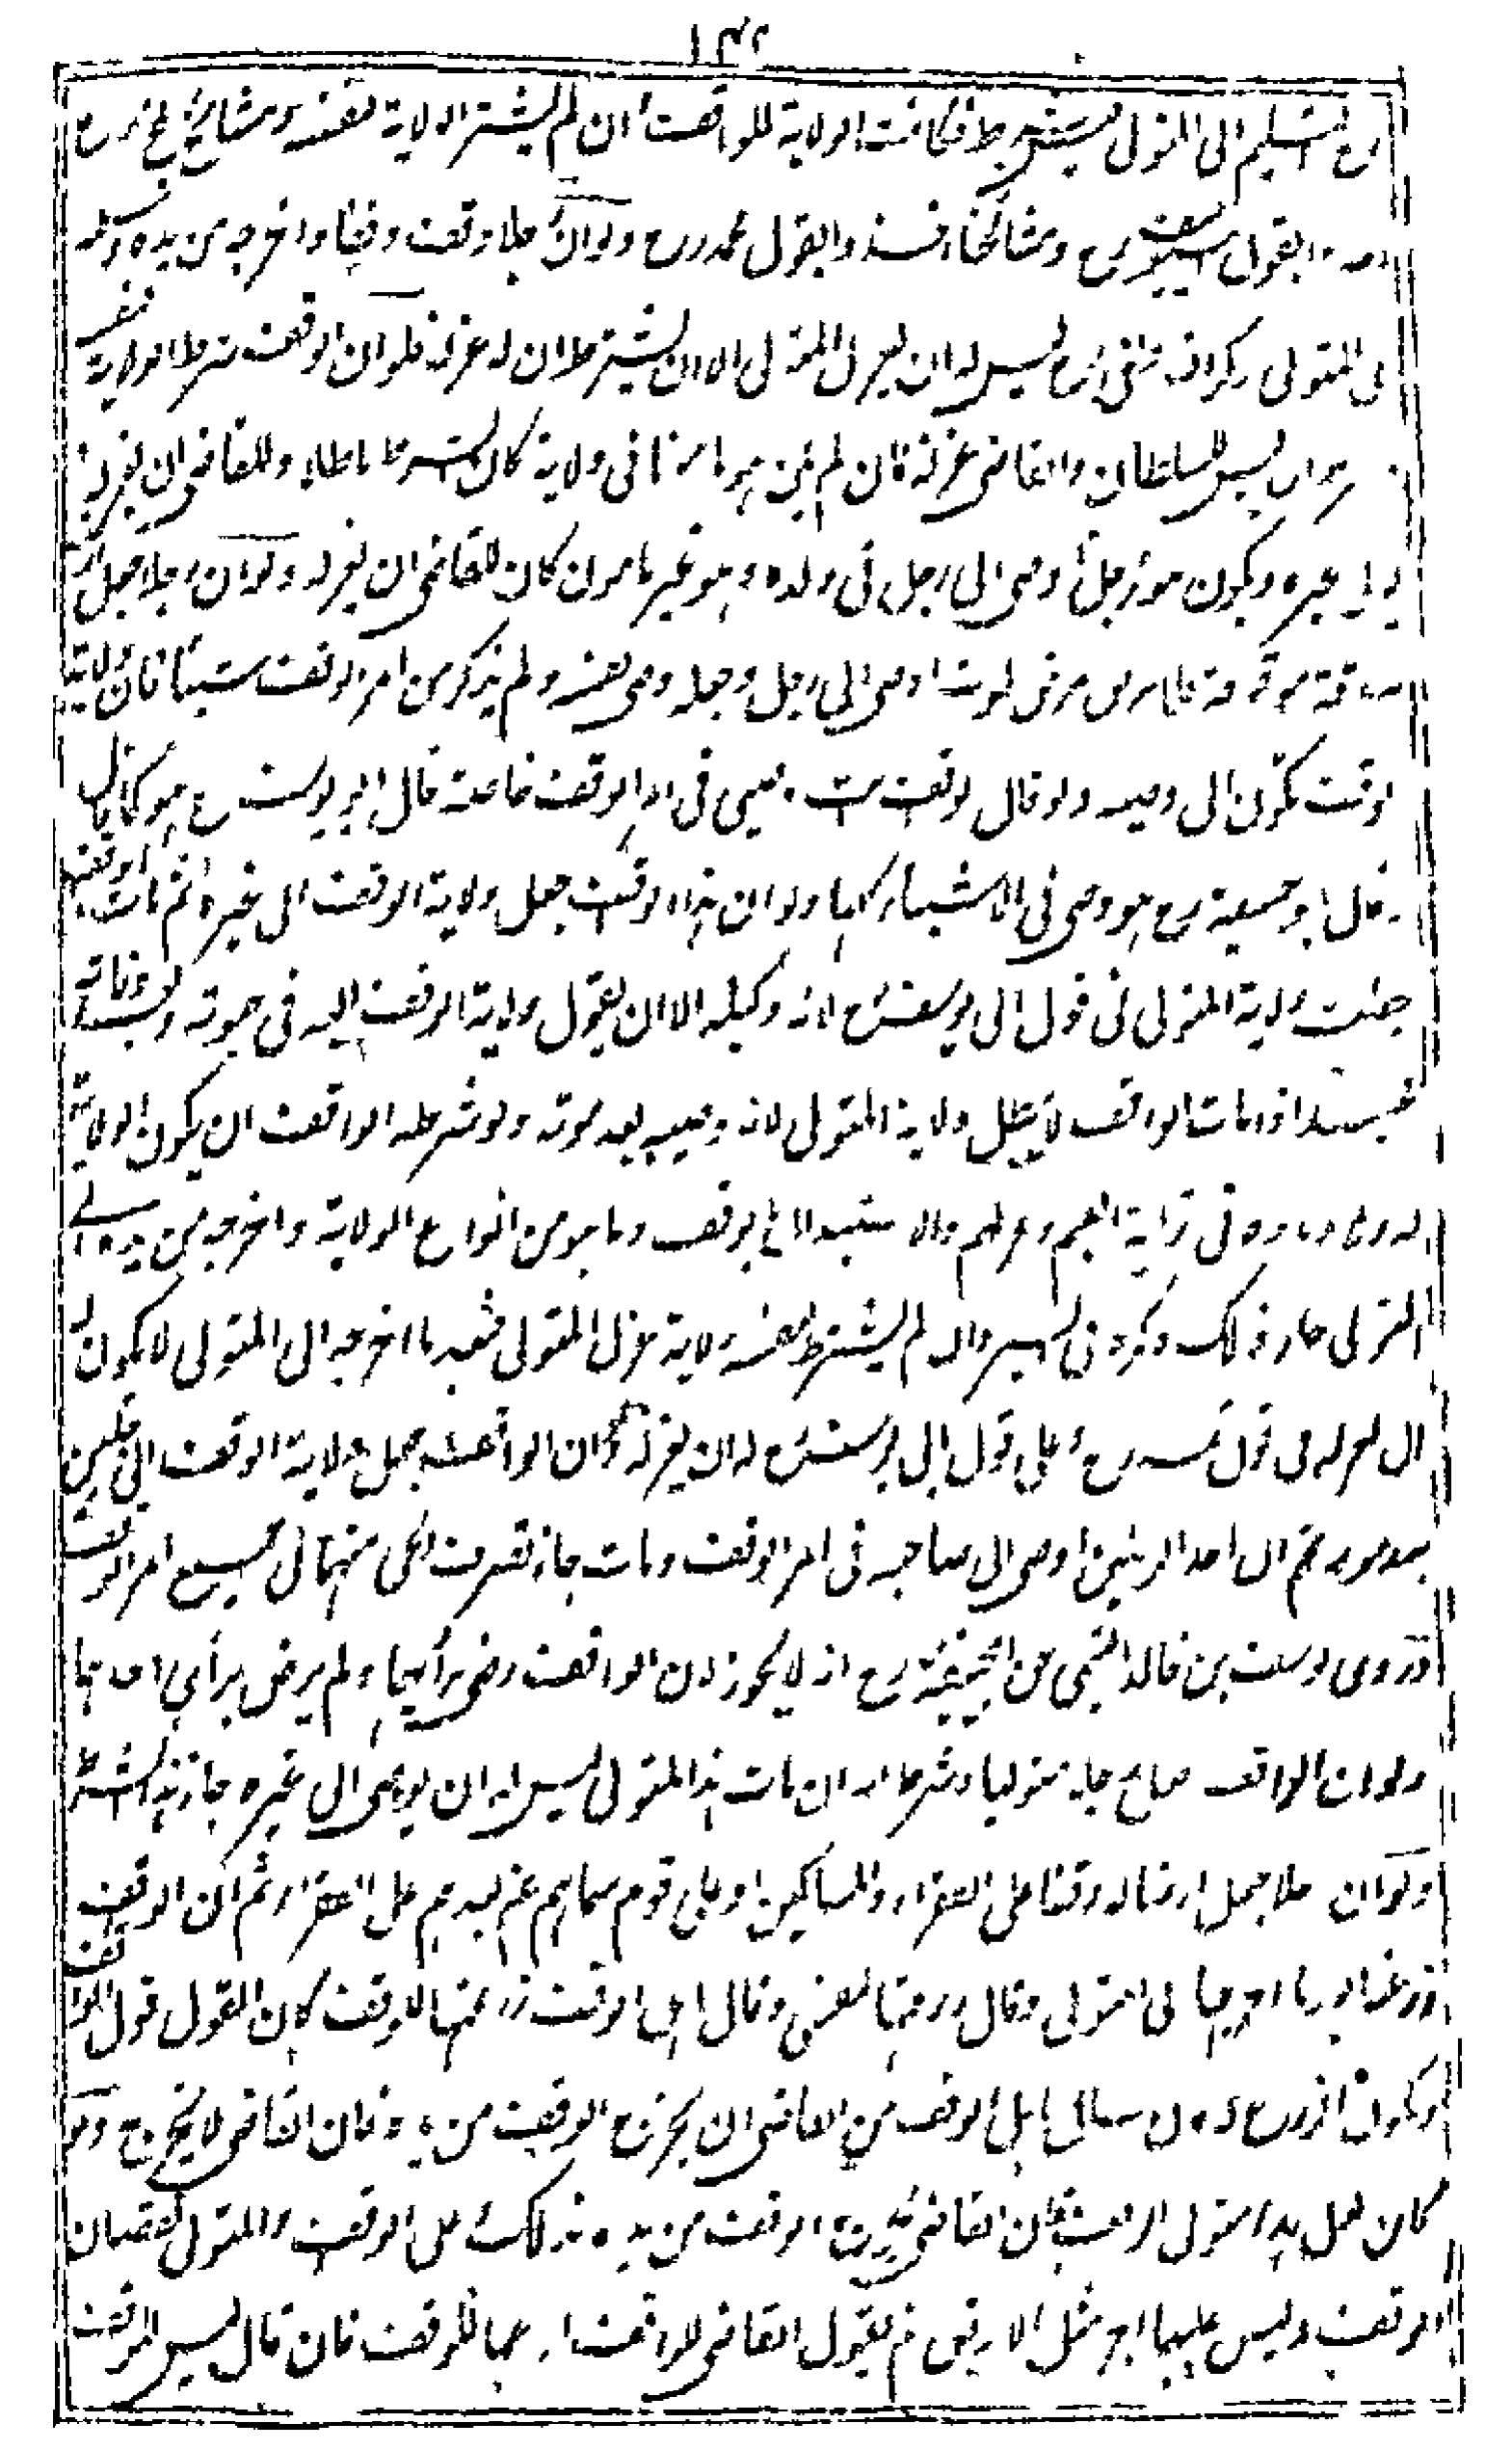 رح التسليم الى المتولى ليس بشرط فكانت الولاية للواقف وان لم يشترط الولاية لنفسه ومشايخ بلخ رح
بقول ابى يوسف رح ومشائخنا افتوا بقول محمد رح ولو ان رجلا وقف وقفا واخرجه من يده وسلمه
الى المتولى ذكر انه ليس له ان يعزل المتولى الا ان يشترط ان له عزله فلو ان الواقف شرط الولاية لنفسه
ليس للسلطان والقاضى عزله فان لم يكن هو مامونا فى ولاية كان الشرط باطلا وللقاضى ان يعزله
ويولى غيره ويكون هو كرجل اوصى الى رجل فى ولده وهو غير مامون كان للقاضى ان يعزله ولو ان رجلا جعل ارضه
صدقة موقوفة فلما مرض مرض الموت اوصى الى رجل وجعله وصى نفسه ولم يذكر من امر الوقف شيئا فان ولاية
الوقف تكون الى وصيه ولو قال انت وصيى فى امر الوقف خاصة قال ابو يوسف رح هو كما قال
وقال ابو حنيفة رح هو وصى فى الاشياء كلها ولو ان هذا الواقف جعل ولاية الوقف الى غيره ثم مات الواقف
بطلت ولاية المتولى فى قول ابى يوسف رح لانه وكيله الا ان يقول ولاية الوقف اليه فى حيوته وبعد وفاته
فحينئذ اذا مات الواقف لا يبطل ولاية المتولى لانه وصيه بعد موته ولو شرط الواقف ان يكون الولاية
له ولاولاده فى تولية القيم وعزلهم والاستبدال بالوقف وما هو من انواع الولاية واخرجه من يده الى
المتولى جاز ذلك ذكره فى السير وان لم يشترط لنفسه ولاية عزل المتولى فبعد ما اخرجه الى المتولى لا يكون له
ان يعزله فى قول محمد رح وعلى قول ابى يوسف رح له ان يعزله ولو ان الواقف جعل ولاية الوقف الى رجلين
بعد موته ثم ان احد الرجلين اوصى الى صاحبه فى امر الوقف ومات جاز تصرف الحى منهما فى جميع امر الوقف
وروى يوسف بن خالد السمتى عن ابى حنيفة رح انه لا يجوز لان الواقف رضى برأيهما ولم يرض برأى احدهما
ولو ان الواقف جعل له متوليا وشرط انه ان مات هذا المتولى ليس له ان يوصى الى غيره جاز هذا الشرط
ولو ان رجلا جعل ارضا له وقفا على الفقراء والمساكين او على قوم سماهم ثم بعدهم على الفقراء ثم ان الواقف
زرعها بعد ما اخرجها الى المتولى وقال زرعتها لنفسى وقال اهل الوقف زرعتها للوقف كان القول قول الواقف
ويكون الزرع له فان سأل اهل الوقف من القاضى ان يخرج الوقف من يده فان القاضى لا يخرج ولو
كان فعل هذا متولى الوقف فان القاضى يخرج الوقف من يده وكذلك على الواقف والمتولى نقصان
الوقف وليس عليهما اجر مثل الارض ثم يقول القاضى للواقف ازرعها للوقف فان قال ليس للوقف